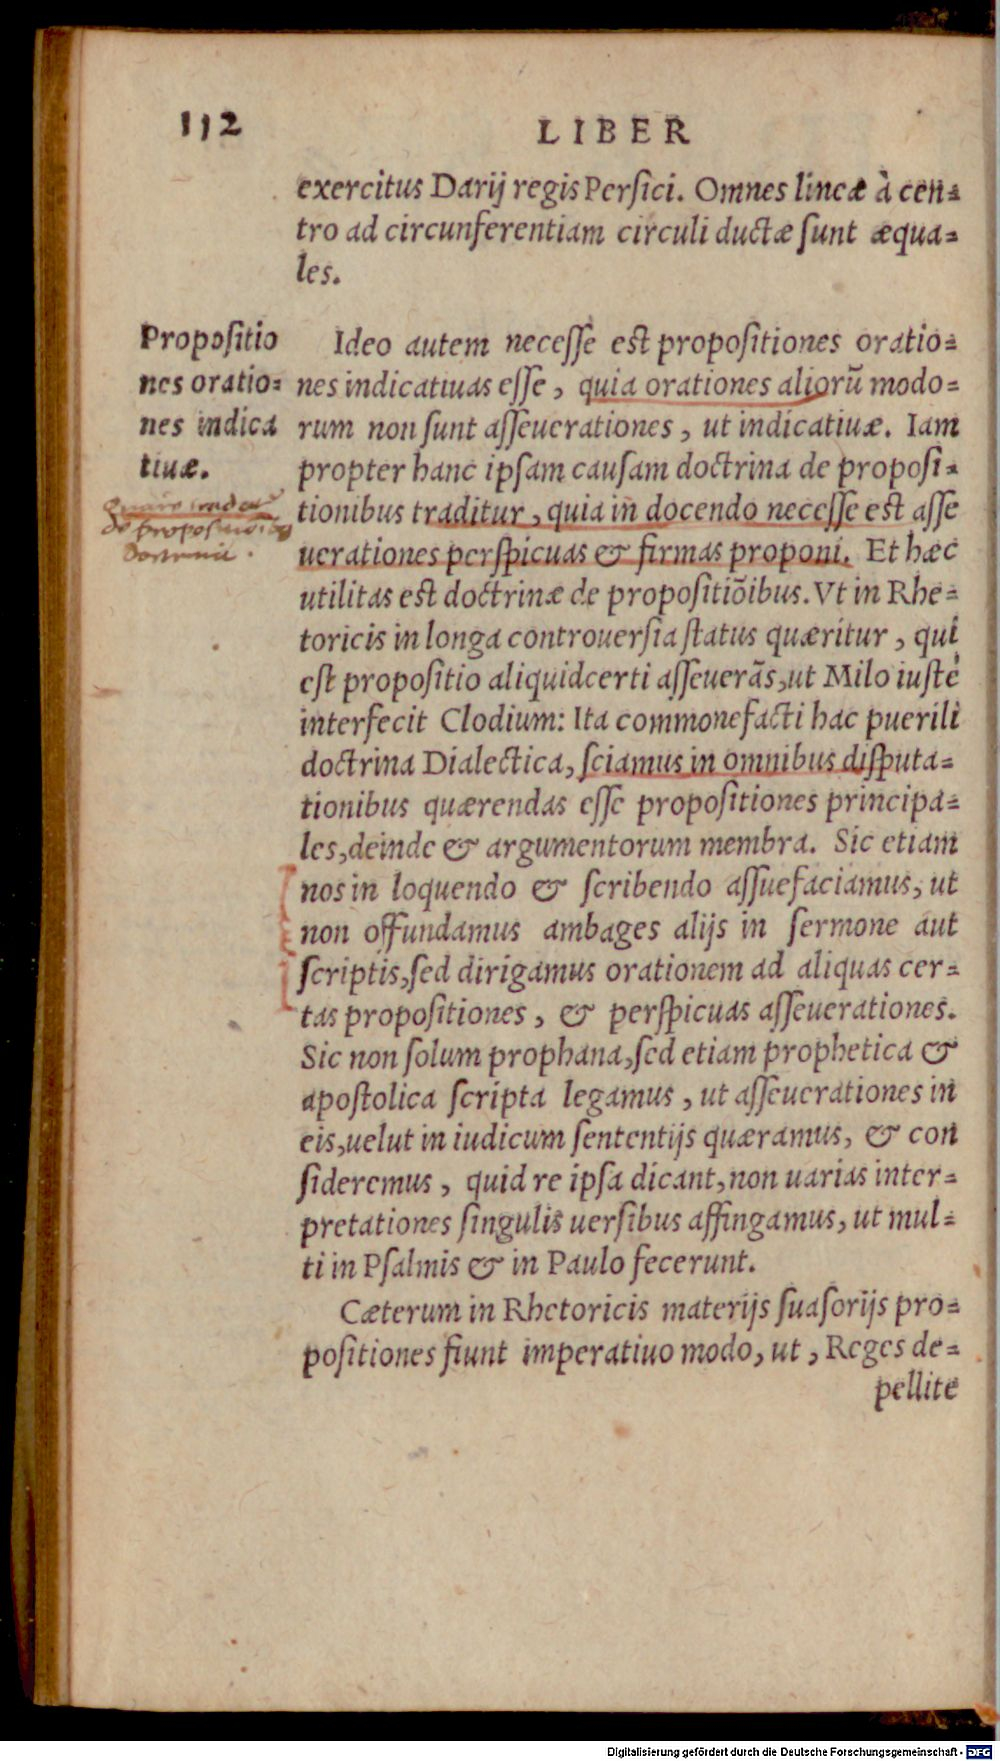 112
LIBER
exercitus Darij regis Persici. Omnes lineæ à cen-
tro ad circunferentiam circuli ductæ sunt æqua-
les.
Propositio
nes oratio-
nes indica
tiuæ.
Ideo autem necesse est propositiones oratio-
nes indicatiuas esse, quia orationes aliorũ modo-
rum non sunt asseuerationes, ut indicatiuæ. Iam
propter hanc ipsam causam doctrina de proposi-
tionibus traditur, quia in docendo necesse est asse
uerationes perspicuas & firmas proponi. Et hæc
utilitas est doctrinæ de propositiõibus. Vt in Rhe-
toricis in longa controuersia status quæritur, qui
est propositio aliquid certi asseuerãs, ut Milo iustè
interfecit Clodium: Ita commonefacti hac puerili
doctrina Dialectica, sciamus in omnibus disputa-
tionibus quærendas esse propositiones principa-
les, deinde & argumentorum membra. Sic etiam
nos in loquendo & scribendo assuefaciamus, ut
non offundamus ambages alijs in sermone aut
scriptis, sed dirigamus orationem ad aliquas cer-
tas propositiones, & perspicuas asseuerationes.
Sic non solum prophana, sed etiam prophetica &
apostolica scripta legamus, ut asseuerationes in
eis, uelut in iudicum sententijs quæramus, & con
sideremus, quid re ipsa dicant, non uarias inter-
pretationes singulis uersibus affingamus, ut mul-
ti in Psalmis & in Paulo fecerunt.
Cæterum in Rhetoricis materijs suasorijs pro-
positiones fiunt imperatiuo modo, ut, Reges de-
pellite
Digitalisierung gefördert durch die Deutsche Forschungsgemeinschaft - DFG